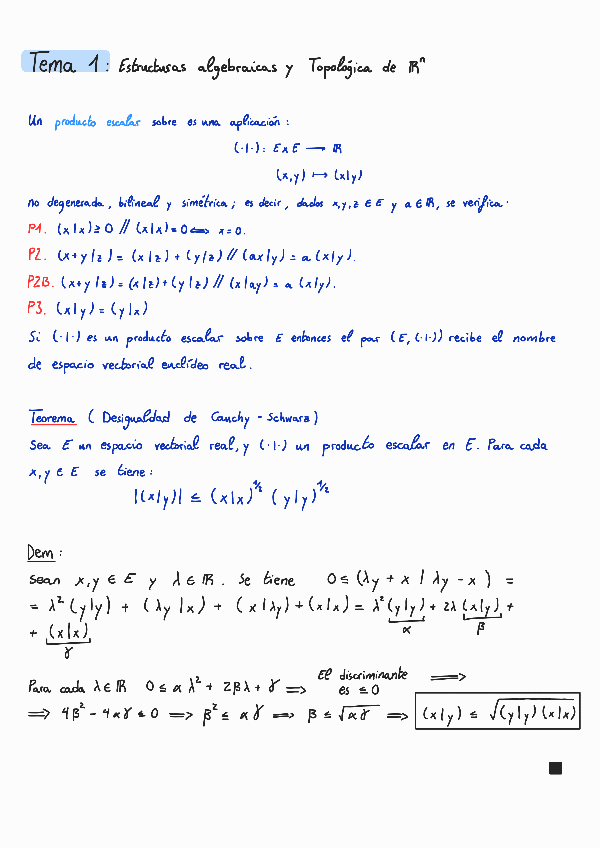 Tema 1: Estructuras algebraicas y Topológica de ℝⁿ
Un producto escalar sobre es una aplicación:
(·|·): E x E ⟶ ℝ
(x,y) ⟼ (x|y)
no degenerada, bilineal y simétrica; es decir, dados x,y,z ∈ E y a ∈ ℝ, se verifica:
P1. (x|x) ≥ 0 // (x|x) = 0 ⟺ x = 0.
P2. (x+y|z) = (x|z) + (y|z) // (ax|y) = a (x|y).
P2B. (x+y|z) = (x|z) + (y|z) // (x|ay) = a (x|y).
P3. (x|y) = (y|x)
Si (·|·) es un producto escalar sobre E entonces el par (E, (·|·)) recibe el nombre
de espacio vectorial euclídeo real.
Teorema (Desigualdad de Cauchy - Schwarz)
Sea E un espacio vectorial real, y (·|·) un producto escalar en E. Para cada
x, y ∈ E se tiene:
|(x|y)| ≤ (x|x)^1/2 (y|y)^1/2
Dem:
Sean x, y ∈ E y λ ∈ ℝ. Se tiene 0 ≤ (λy + x | λy - x) =
= λ² (y|y) + (λy|x) + (x|λy) + (x|x) = λ² (y|y) + 2λ (x|y) +
α β
+ (x|x)
γ
Para cada λ ∈ ℝ 0 ≤ α λ² + 2βλ + γ ⟹ El discriminante es ≤ 0 ⟹
⟹ 4β² - 4αγ ≤ 0 ⟹ β² ≤ αγ ⟹ β ≤ √αγ ⟹ (x|y) ≤ √(y|y)(x|x)